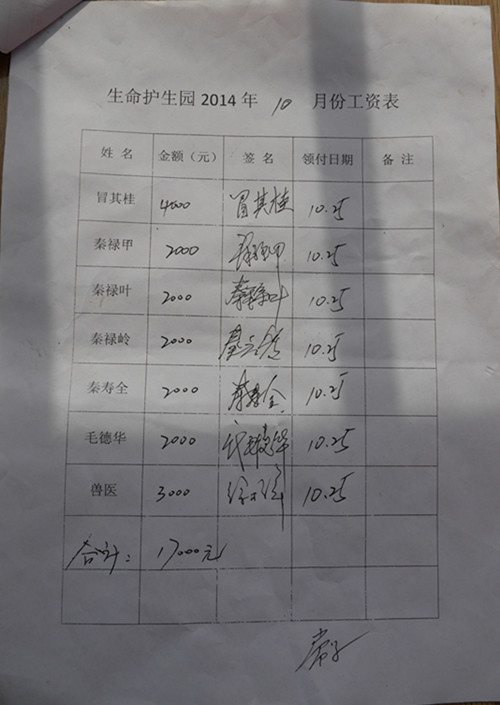 生命护生园2014年 10 月份工资表
姓名 金额（元） 签名 领付日期 备注
冒其桂 4000 冒其桂 10.25
秦禄甲 2000 秦禄甲 10.25
秦禄叶 2000 秦禄叶 10.25
秦禄岭 2000 10.25
秦寿全 2000 秦寿全 10.25
毛德华 2000 毛德华 10.25
兽医 3000 10.25
合计： 17000元